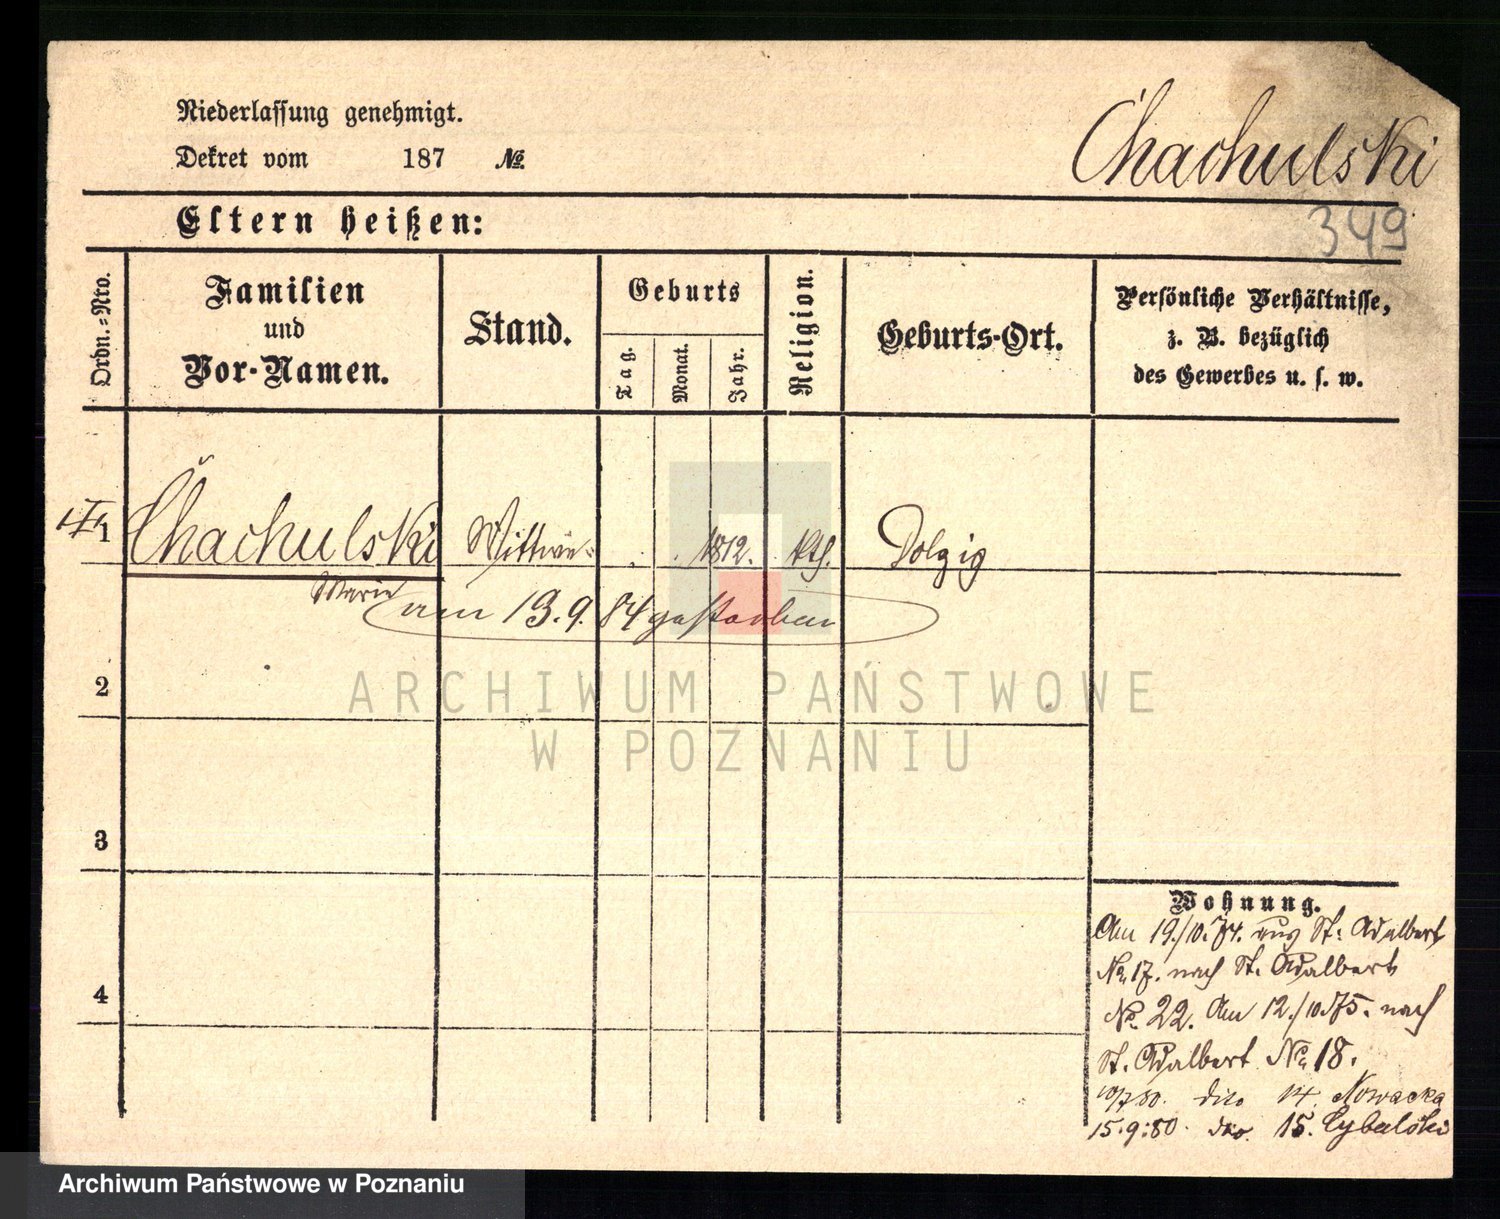 Niederlassung genehmigt.
Dekret vom 187 №
Chachulski
Eltern heißen:
349
Ordn.-Nro.
Familien
und
Vor-Namen.
Stand.
Geburts
Tag.
Monat.
Jahr.
Religion.
Geburts-Ort.
Persönliche Verhältnisse,
z. B. bezüglich
des Gewerbes u. s. w.
1 Chachulski Wittwe 1812. kth. Dolzig
Marie
am 13.9.84 gestorben
2
ARCHIWUM PAŃSTWOWE
W POZNANIU
3
4
Wohnung.
Am 19./10.74. aus St. Adalbert
No 17. nach St. Adalbert
No. 22. Am 12./10.75. nach
St. Adalbert No. 18.
10/7 80. dito 14. Nowacka
15.9.:80. dto. 15. Cybalski
Archiwum Państwowe w Poznaniu